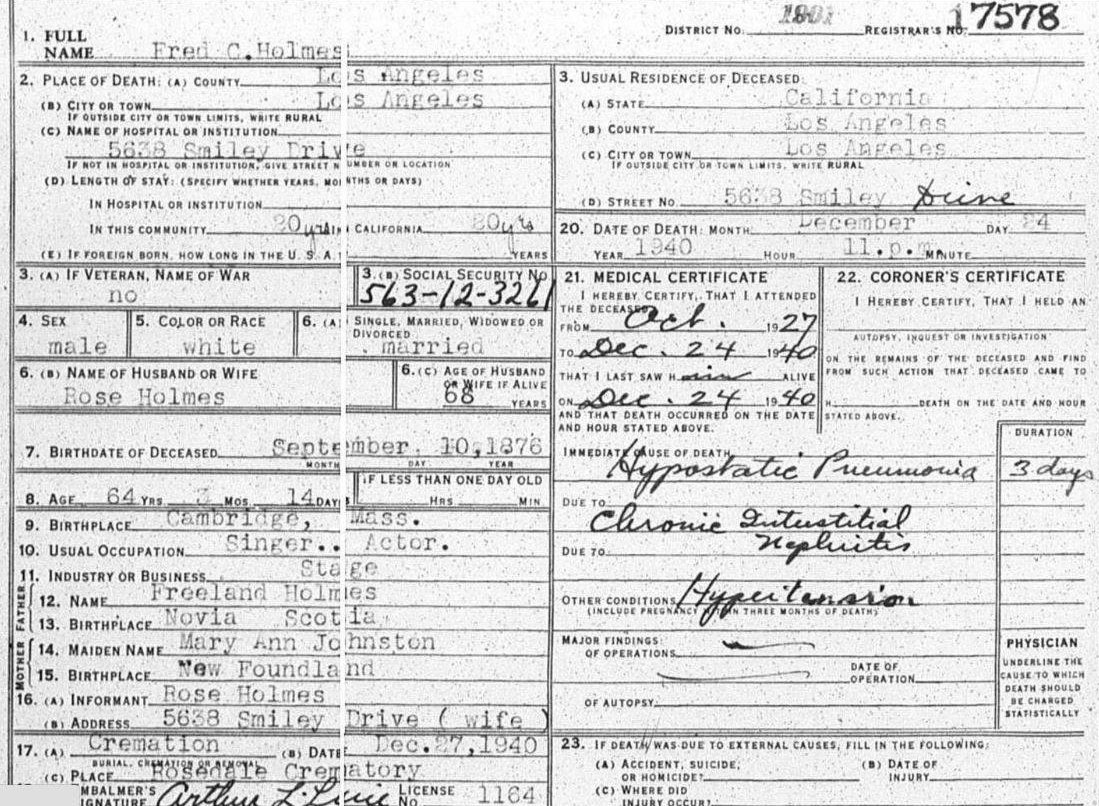 DISTRICT NO. 1901 REGISTRAR'S NO. 17578
1. FULL NAME Fred C. Holmes
2. PLACE OF DEATH: (A) COUNTY Los Angeles
(B) CITY OR TOWN Los Angeles
IF OUTSIDE CITY OR TOWN LIMITS, WRITE RURAL
(C) NAME OF HOSPITAL OR INSTITUTION
5638 Smiley Drive
IF NOT IN HOSPITAL OR INSTITUTION, GIVE STREET NUMBER OR LOCATION
(D) LENGTH OF STAY: (SPECIFY WHETHER YEARS, MONTHS OR DAYS)
IN HOSPITAL OR INSTITUTION
IN THIS COMMUNITY 20 yrs IN CALIFORNIA 20 yrs
(E) IF FOREIGN BORN, HOW LONG IN THE U. S. A. YEARS
3. USUAL RESIDENCE OF DECEASED:
(A) STATE California
(B) COUNTY Los Angeles
(C) CITY OR TOWN Los Angeles
IF OUTSIDE CITY OR TOWN LIMITS, WRITE RURAL
(D) STREET NO. 5638 Smiley Drive
20. DATE OF DEATH: MONTH December DAY 24
YEAR 1940 HOUR 11. p.m. MINUTE
3. (A) IF VETERAN, NAME OF WAR
no
3. (B) SOCIAL SECURITY NO.
563-12-3261
4. SEX
male
5. COLOR OR RACE
white
6. (A) SINGLE, MARRIED, WIDOWED OR DIVORCED
married
6. (B) NAME OF HUSBAND OR WIFE
Rose Holmes
6. (C) AGE OF HUSBAND OR WIFE IF ALIVE
68 YEARS
7. BIRTHDATE OF DECEASED September 10, 1876
MONTH DAY YEAR
8. AGE 64 YRS 3 MOS 14 DAYS
IF LESS THAN ONE DAY OLD
HRS MIN
9. BIRTHPLACE Cambridge, Mass.
10. USUAL OCCUPATION Singer.. Actor.
11. INDUSTRY OR BUSINESS Stage
FATHER
12. NAME Freeland Holmes
13. BIRTHPLACE Novia Scotia
MOTHER
14. MAIDEN NAME Mary Ann Johnston
15. BIRTHPLACE New Foundland
16. (A) INFORMANT Rose Holmes
(B) ADDRESS 5638 Smiley Drive ( wife )
17. (A) Cremation (B) DATE Dec.27,1940
BURIAL, CREMATION OR REMOVAL
(C) PLACE Rosedale Crematory
EMBALMER'S SIGNATURE Arthur L. LICENSE NO. 1164
21. MEDICAL CERTIFICATE
I HEREBY CERTIFY, THAT I ATTENDED
THE DECEASED
FROM Oct. 1927
TO Dec. 24 1940
THAT I LAST SAW H im ALIVE
ON Dec. 24 1940
AND THAT DEATH OCCURRED ON THE DATE
AND HOUR STATED ABOVE.
22. CORONER'S CERTIFICATE
I HEREBY CERTIFY, THAT I HELD AN
AUTOPSY, INQUEST OR INVESTIGATION
ON THE REMAINS OF THE DECEASED AND FIND
FROM SUCH ACTION THAT DECEASED CAME TO
H DEATH ON THE DATE AND HOUR
STATED ABOVE.
DURATION
IMMEDIATE CAUSE OF DEATH
Hypostatic Pneumonia 3 days
DUE TO
Chronic Interstitial
DUE TO Nephritis
OTHER CONDITIONS Hypertension
(INCLUDE PREGNANCY WITHIN THREE MONTHS OF DEATH)
MAJOR FINDINGS:
OF OPERATIONS
DATE OF OPERATION
OF AUTOPSY
PHYSICIAN
UNDERLINE THE
CAUSE TO WHICH
DEATH SHOULD
BE CHARGED
STATISTICALLY
23. IF DEATH WAS DUE TO EXTERNAL CAUSES, FILL IN THE FOLLOWING:
(A) ACCIDENT, SUICIDE, OR HOMICIDE?
(B) DATE OF INJURY
(C) WHERE DID INJURY OCCUR?